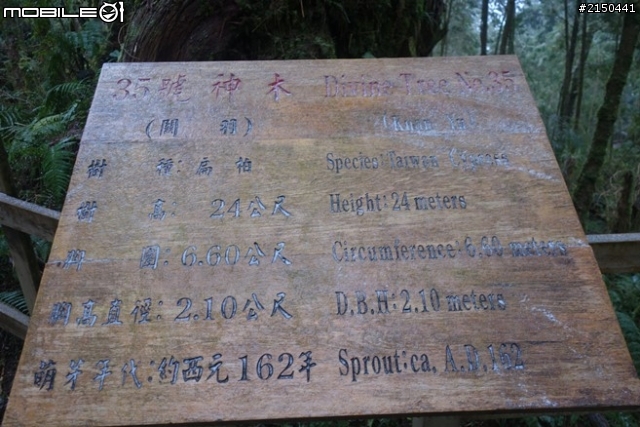 MOBILE01
#2150441
35號神木 Divine Tree No.35
(關羽) (Kuan Yu)
樹種:扁柏 Species:Taiwan Cypress
樹高: 24公尺 Height:24 meters
胸圍:6.60公尺 Circumference:6.60 meters
胸高直徑:2.10公尺 D.B.H:2.10 meters
萌芽年代:約西元162年 Sprout:ca. A.D.162